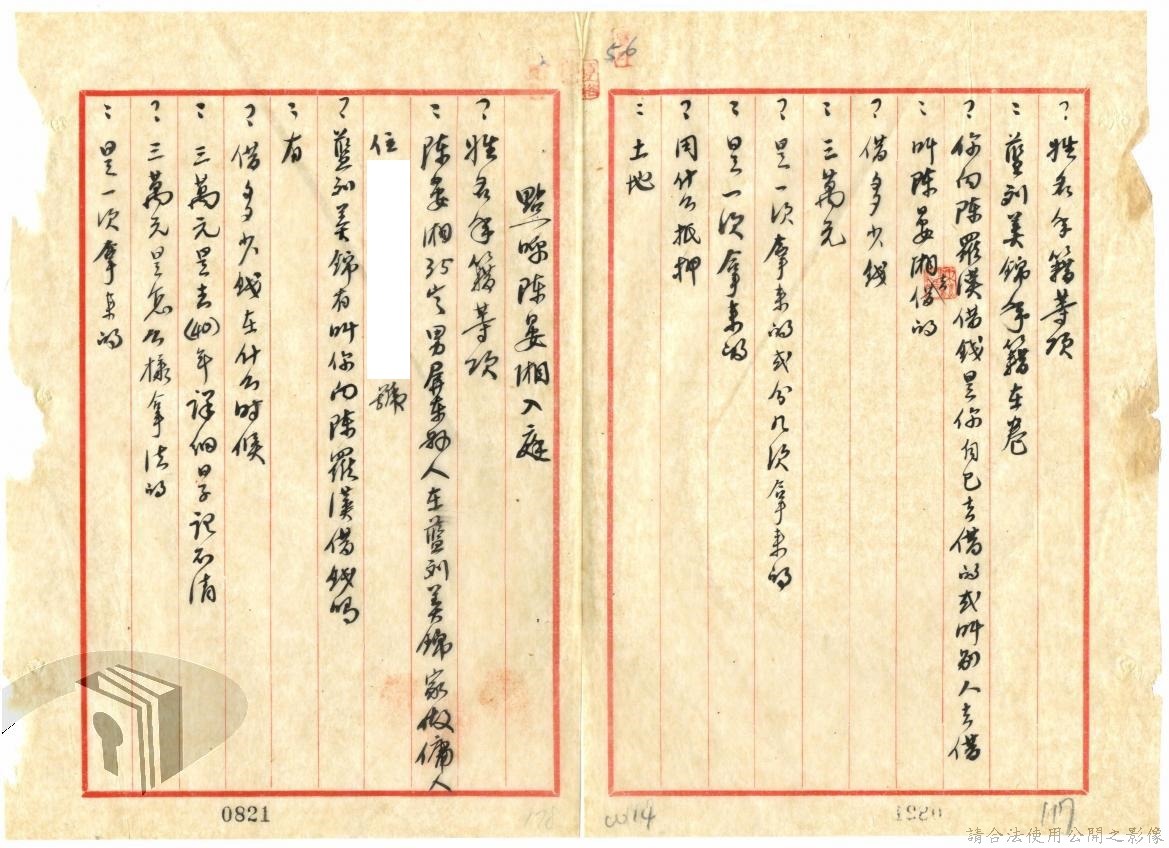 56
？姓名年籍等項
：藍刘美錦年籍在卷
？你向陳羅漢借錢是你自己去借的或叫别人去借
：叫陳晏湘借的
？借多少錢
：三萬元
？是一次拿来的或分几次拿来的
：是一次拿来的
？用什么抵押
：土地
點呼陳晏湘入庭
？姓名年籍等项
：陳晏湘35岁男屏東縣人在藍刘美錦家做傭人
住
號
？藍刘美錦有叫你向陳羅漢借錢嗎
：有
？借多少錢在什么时候
：三萬元是去(40)年詳細日子記不清
？三萬元是怎么樣拿法的
：是一次拿来的
0821
117
請合法使用公開之影像